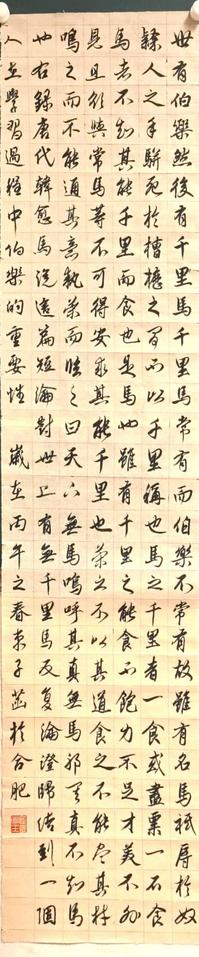 世有伯樂然後有千里馬千里馬常有而伯樂不常有故雖有名馬衹辱於奴
隸人之手駢死於槽櫪之間不以千里稱也馬之千里者一食或盡粟一石食
馬者不知其能千里而食也是馬也雖有千里之能食不飽力不足才美不外
見且欲與常馬等不可得安求其能千里也策之不以其道食之不能尽其材
鳴之而不能通其意執策而臨之曰天下無馬嗚呼其真無馬邪其真不知馬
也右錄唐代韓愈馬说這篇短論對世上有無千里馬反復論證歸結到一個
人在學習過程中伯樂的重要性 歲在丙午之春於合肥